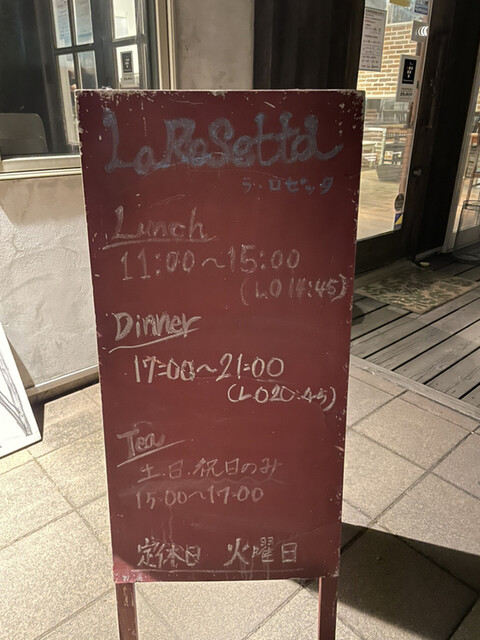 La Rosetta
ラ・ロゼッタ
Lunch
11:00～15:00
(L.O 14:45)
Dinner
17:00～21:00
(L.O 20:45)
Tea
土.日.祝日のみ
15:00～17:00
定休日 火曜日